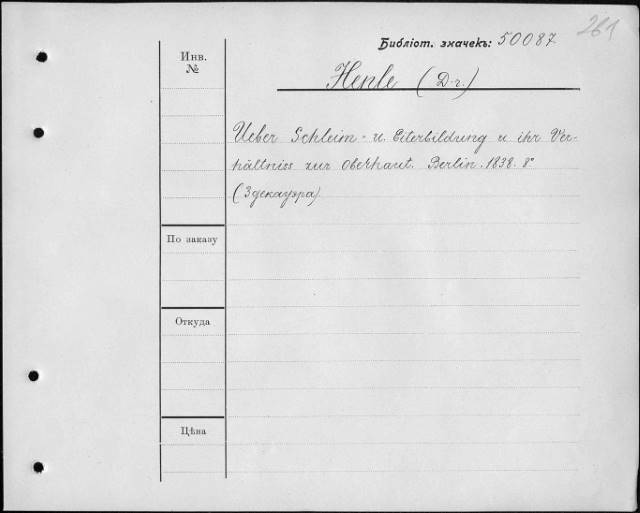 261
Библіот. значекъ: 50087
Инв.
№
Henle (D-r.)
Ueber Schleim- u. Eiterbildung u ihr Ver-
hältniss zur Oberhaut. Berlin. 1838. 8°
(3 декауэра)
По заказу
Откуда
Цѣна